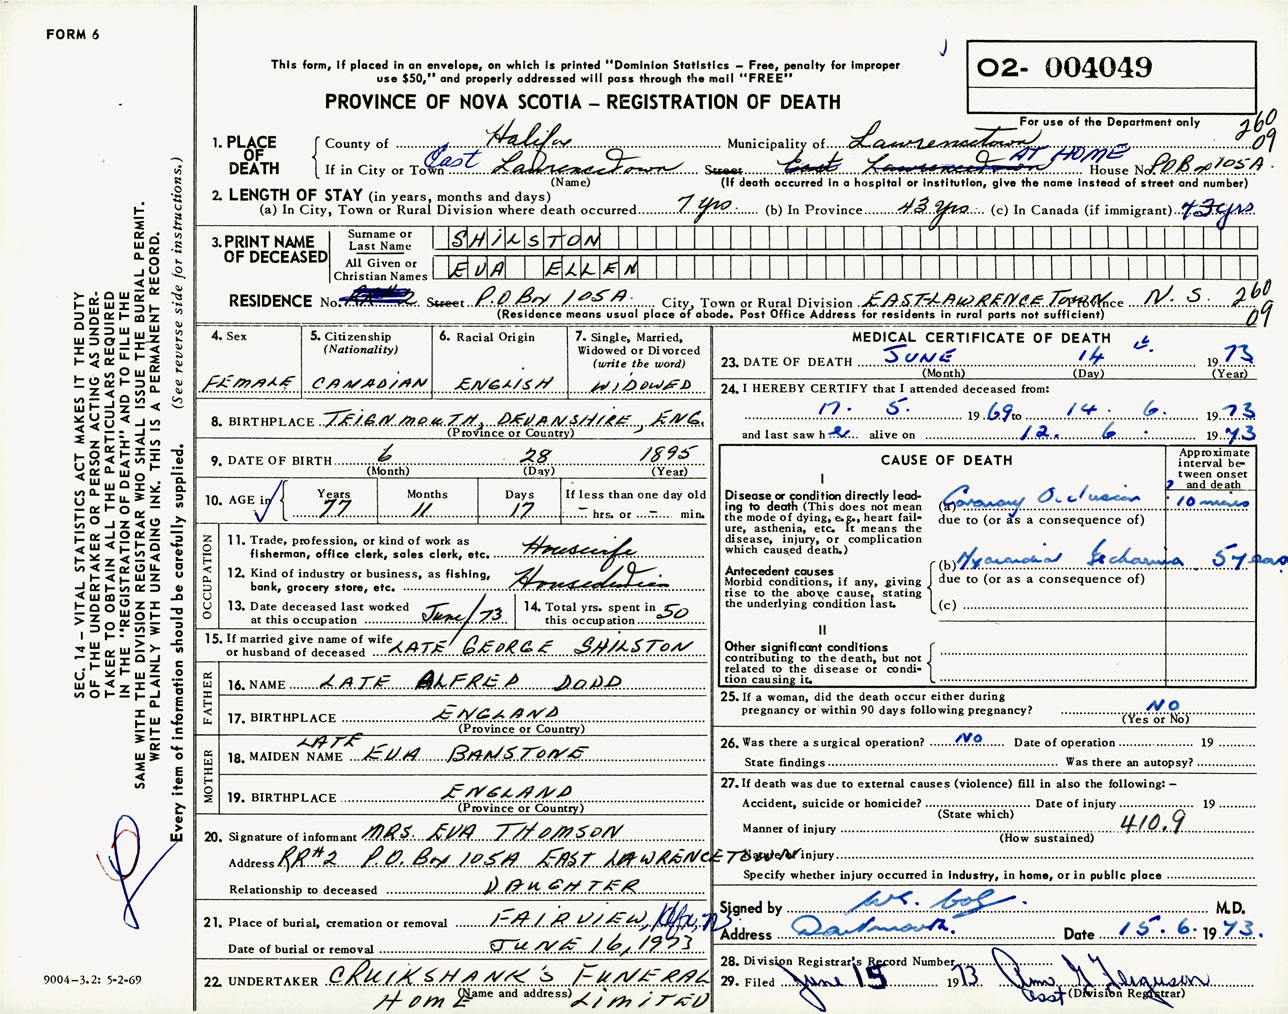 FORM 6
This form, if placed in an envelope, on which is printed "Dominion Statistics – Free, penalty for improper
use $50," and properly addressed will pass through the mail "FREE"
PROVINCE OF NOVA SCOTIA – REGISTRATION OF DEATH
O2- 004049
For use of the Department only
260
09
1. PLACE OF DEATH
County of Halifax Municipality of Lawrencetown
If in City or Town East Lawrencetown Street East Lawrencetown AT HOME House No. P.O Box 105A.
(Name) (If death occurred in a hospital or institution, give the name instead of street and number)
2. LENGTH OF STAY (in years, months and days)
(a) In City, Town or Rural Division where death occurred 7 yrs. (b) In Province 43 yrs. (c) In Canada (if immigrant) 43 yrs
3. PRINT NAME OF DECEASED
Surname or Last Name SHILSTON
All Given or Christian Names EVA ELLEN
RESIDENCE No. RR#2 Street P.O Box 105A. City, Town or Rural Division EAST LAWRENCETOWN Province N.S. 260
09
(Residence means usual place of abode. Post Office Address for residents in rural parts not sufficient)
4. Sex FEMALE
5. Citizenship (Nationality) CANADIAN
6. Racial Origin ENGLISH
7. Single, Married, Widowed or Divorced (write the word) WIDOWED
8. BIRTHPLACE TEIGNMOUTH, DEVANSHIRE, ENG.
(Province or Country)
9. DATE OF BIRTH 6 28 1895
(Month) (Day) (Year)
10. AGE in Years 77 Months 11 Days 17 If less than one day old – hrs. or – min.
OCCUPATION
11. Trade, profession, or kind of work as fisherman, office clerk, sales clerk, etc. Housewife
12. Kind of industry or business, as fishing, bank, grocery store, etc. Houseduties
13. Date deceased last worked at this occupation June/73
14. Total yrs. spent in this occupation 50
15. If married give name of wife or husband of deceased LATE GEORGE SHILSTON
FATHER
16. NAME LATE ALFRED DODD
17. BIRTHPLACE ENGLAND
(Province or Country)
MOTHER
18. MAIDEN NAME LATE EVA BANSTONE
19. BIRTHPLACE ENGLAND
(Province or Country)
20. Signature of informant MRS. EVA THOMSON
Address RR#2 P.O. Box 105A EAST LAWRENCETOWN
Relationship to deceased DAUGHTER
21. Place of burial, cremation or removal FAIRVIEW, Hfx, N.S
Date of burial or removal JUNE 16, 1973
22. UNDERTAKER CRUIKSHANK'S FUNERAL
HOME LIMITED
(Name and address)
MEDICAL CERTIFICATE OF DEATH
23. DATE OF DEATH JUNE 14th 1973
(Month) (Day) (Year)
24. I HEREBY CERTIFY that I attended deceased from:
17. 5. 1969 to 14. 6. 1973
and last saw her alive on 12. 6. 1973
CAUSE OF DEATH
Approximate interval between onset and death
I
Disease or condition directly leading to death (This does not mean the mode of dying, e.g., heart failure, asthenia, etc. It means the disease, injury, or complication which caused death.)
(a) Coronary Occlusion ? 10 mins
due to (or as a consequence of)
Antecedent causes
Morbid conditions, if any, giving rise to the above cause, stating the underlying condition last.
(b) Myocardial Ischaemia 5 years
due to (or as a consequence of)
(c)
II
Other significant conditions
contributing to the death, but not related to the disease or condition causing it.
25. If a woman, did the death occur either during
pregnancy or within 90 days following pregnancy? NO
(Yes or No)
26. Was there a surgical operation? NO Date of operation 19
State findings Was there an autopsy?
27. If death was due to external causes (violence) fill in also the following: –
Accident, suicide or homicide? Date of injury 19
(State which)
Manner of injury 410.9
(How sustained)
Nature of injury
Specify whether injury occurred in industry, in home, or in public place
Signed by M.D.
Address Dartmouth. Date 15. 6. 1973.
28. Division Registrar's Record Number
29. Filed June 15 1973 Ferguson
Asst (Division Registrar)
SEC. 14 – VITAL STATISTICS ACT MAKES IT THE DUTY
OF THE UNDERTAKER OR PERSON ACTING AS UNDER-
TAKER TO OBTAIN ALL THE PARTICULARS REQUIRED
IN THE "REGISTRATION OF DEATH" AND TO FILE THE
SAME WITH THE DIVISION REGISTRAR WHO SHALL ISSUE THE BURIAL PERMIT.
WRITE PLAINLY WITH UNFADING INK. THIS IS A PERMANENT RECORD.
Every item of information should be carefully supplied. (See reverse side for instructions.)
9004–3.2: 5-2-69